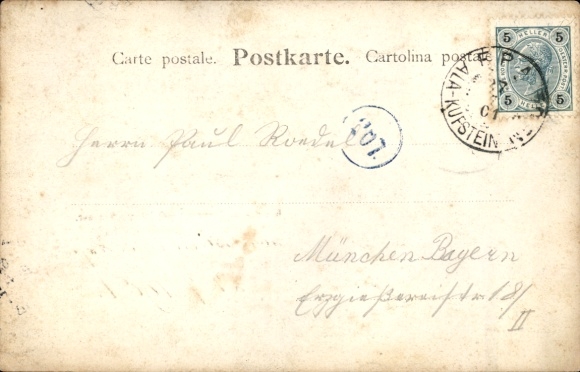 Carte postale. Postkarte. Cartolina postale
5 HELLER 5
5 HELLER 5
ALA-KUFSTEIN
107
Herrn Paul Roedel
München Bayern
Erzgießereistr 18/
II